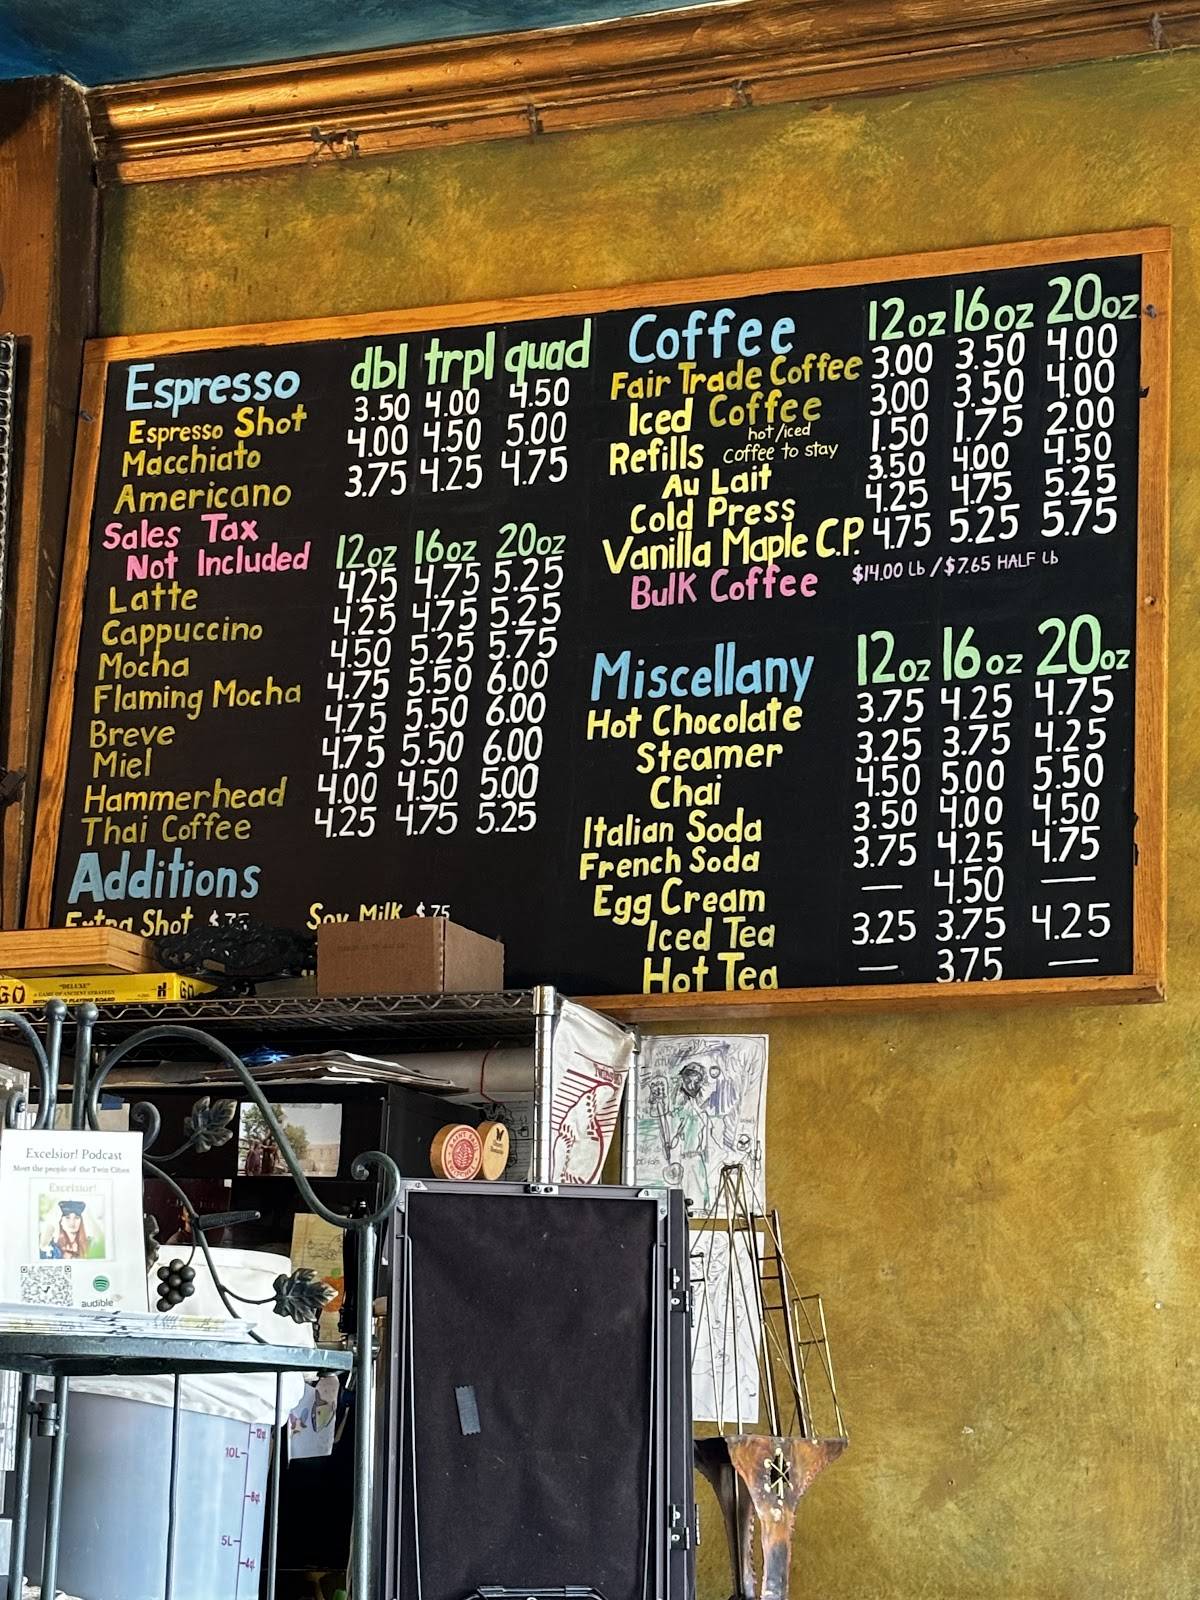 Espresso dbl trpl quad
Espresso Shot 3.50 4.00 4.50
Macchiato 4.00 4.50 5.00
Americano 3.75 4.25 4.75
Sales Tax
Not Included 12oz 16oz 20oz
Latte 4.25 4.75 5.25
Cappuccino 4.25 4.75 5.25
Mocha 4.50 5.25 5.75
Flaming Mocha 4.75 5.50 6.00
Breve 4.75 5.50 6.00
Miel 4.75 5.50 6.00
Hammerhead 4.00 4.50 5.00
Thai Coffee 4.25 4.75 5.25
Additions
Extra Shot $.75 Soy Milk $.75
Coffee 12oz 16oz 20oz
Fair Trade Coffee 3.00 3.50 4.00
Iced Coffee 3.00 3.50 4.00
Refills hot/iced coffee to stay 1.50 1.75 2.00
Au Lait 3.50 4.00 4.50
Cold Press 4.25 4.75 5.25
Vanilla Maple C.P. 4.75 5.25 5.75
Bulk Coffee $14.00 Lb / $7.65 HALF Lb
Miscellany 12oz 16oz 20oz
Hot Chocolate 3.75 4.25 4.75
Steamer 3.25 3.75 4.25
Chai 4.50 5.00 5.50
Italian Soda 3.50 4.00 4.50
French Soda 3.75 4.25 4.75
Egg Cream — 4.50 —
Iced Tea 3.25 3.75 4.25
Hot Tea — 3.75 —
GO "DELUXE" GO
A GAME OF ANCIENT STRATEGY
Excelsior! Podcast
Meet the people of the Twin Cities
Excelsior!
audible
10L
8qt
5L
4qt